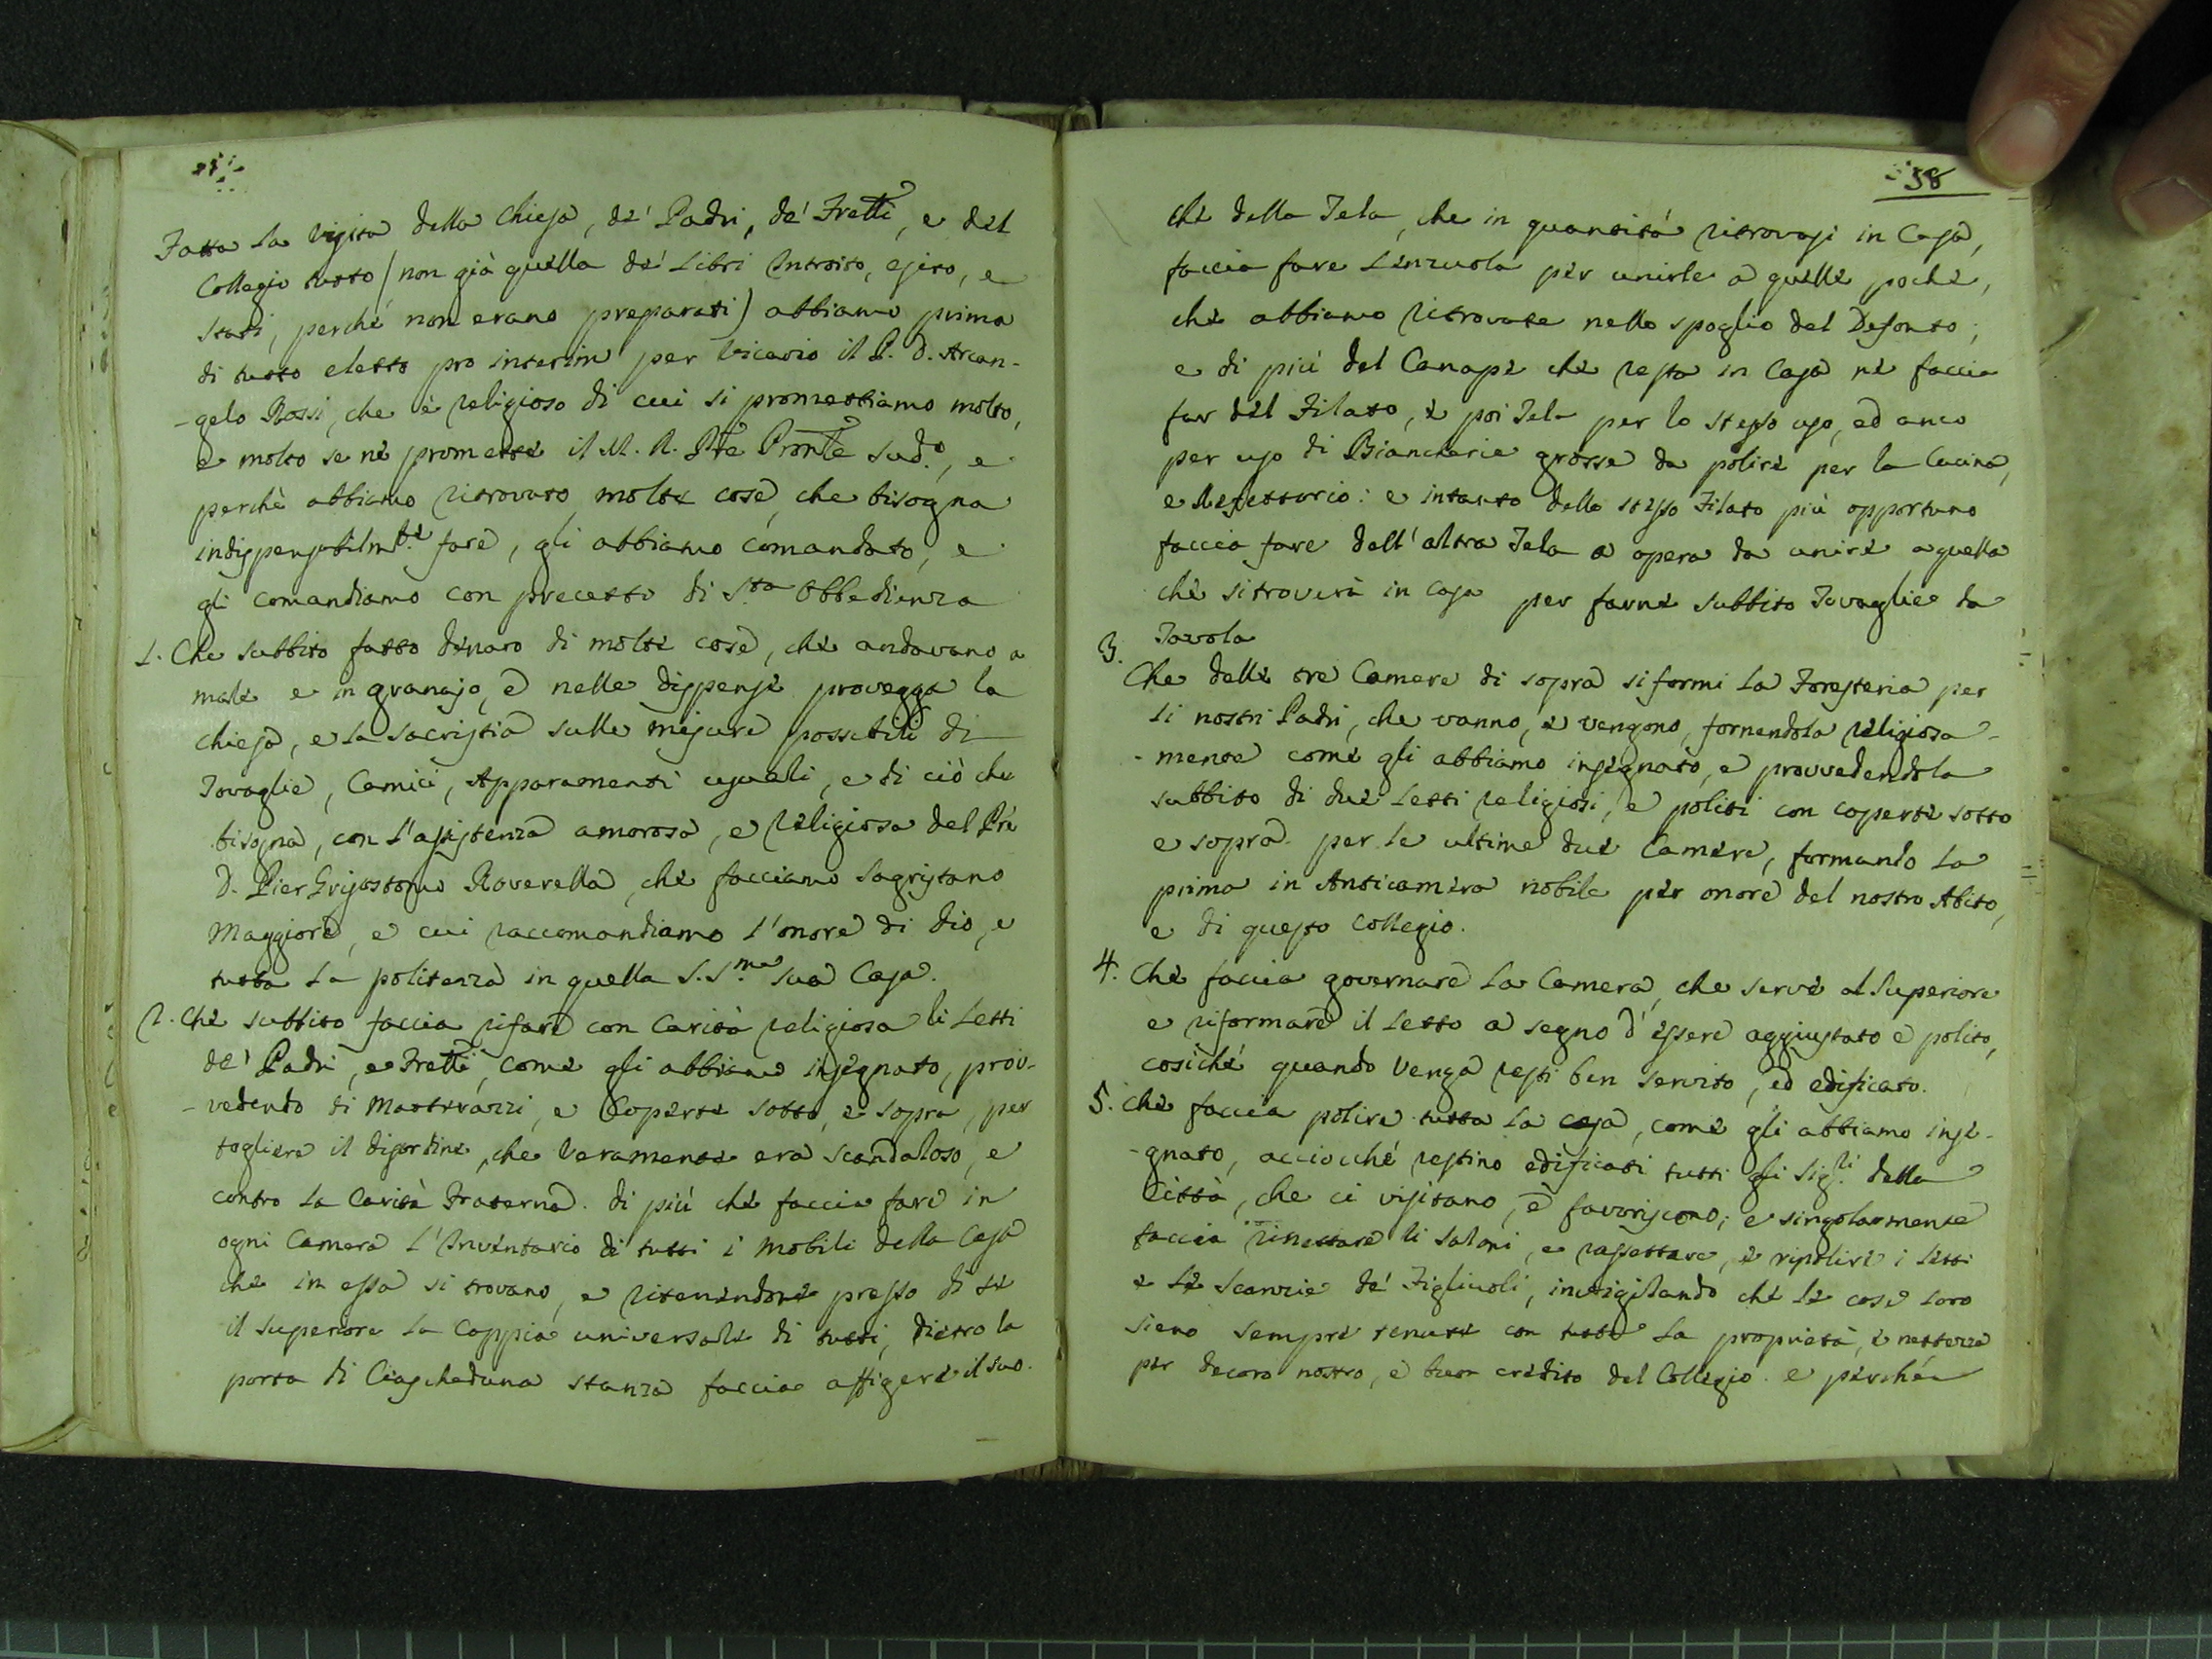 Fatta la visita della Chiesa, de' Padri, de' Frẽlli, e del
Collegio tutto (non già quella de' Libri Introito, esito, e
stati, perché non erano preparati) abbiamo prima
di tutto eletto pro interim per Vicario il P. D. Arcan-
-gelo Rossi, che è religioso di cui si promettiamo molto,
e molto se ne promette il M. R. Pre Pronle sud.º, e
perchè abbiamo ritrovato molte cose, che bisogna
indispensabilmte fare, gli abbiamo comandato, e
gli comandiamo con precetto di Sta Obbedienza
1. Che subbito fatto denaro di molte cose, che andavano a
male e in granajo, e nelle dispense provegga la
chiesa, e la sacristia sulle misure possibili di
Tovaglie, Camici, Apparamenti usuali, e di ciò che
bisogna, con l'assistenza amorosa, e religiosa del Prè
D. Pier Grisostomo Roverella, che facciamo Sagristano
Maggiore, e cui raccomandiamo l'onore di Dio, e
tutta la politezza in quella S.S.ma sua Casa.
2. Che subbito faccia rifare con Carità religiosa li Letti
de' Padri, e Frẽlli, come gli abbiamo insegnato, prov-
-vedendo di Matterazzi, e Coperte sotto, e sopra, per
togliere il disordine, che veramente era scandaloso, e
contro la Carità Fraterna. di più che faccia fare in
ogni Camera l'Inventario di tutti i mobili della Casa
che in essa si trovano, e ritenendone presso di se
il superiore la Coppia universale di tutti, dietro la
porta di Ciascheduna stanza faccia affigere il suo.
58
che della Tela, che in quantità ritrovasi in Casa,
faccia fare Lenzuola per unirle a quelle poche,
che abbiamo ritrovate nello spoglio del Defonto;
e di più del Canape che resta in Casa ne faccia
far del Filato, e poi Tela per lo stesso uso, ed anco
per uso di Biancherie grosse da polire per la Cucina,
e Refettorio: e intanto dello stesso Filato più opportuno
faccia fare dell'altra Tela a opera da unire a quella
che si troverà in Casa per farne subbito Tovaglie da
Tavola
3. Che delle tre Camere di sopra si formi la Foresteria per
li nostri Padri, che vanno, e vengono, fornendola religiosa-
-mente come gli abbiamo insegnato, e provvedendola
subbito di due Letti religiosi, e politi con coperte sotto
e sopra per le ultime due Camere, formando la
prima in Anticamera nobile per onore del nostro Abito,
e di questo Collegio.
4. Che faccia governare la Camera, che serve al Superiore
e riformare il Letto a segno d'essere aggiustato e polito,
cosiché quando venga resti ben servito, ed edificato.
5. Che faccia polire tutta la casa, come gli abbiamo inse-
-gnato, acciocché restino edificati tutti gli Sig.ri della
Città, che ci visitano, e favoriscono; e singolarmente
faccia rinettare li Saloni, e rassettare, e ripolire i Letti
e le Scanzie de' Figliuoli, invigilando che le cose loro
sieno sempre tenute con tutta la proprietà, e nettezza
per decoro nostro, e buon credito del Collegio. e perché